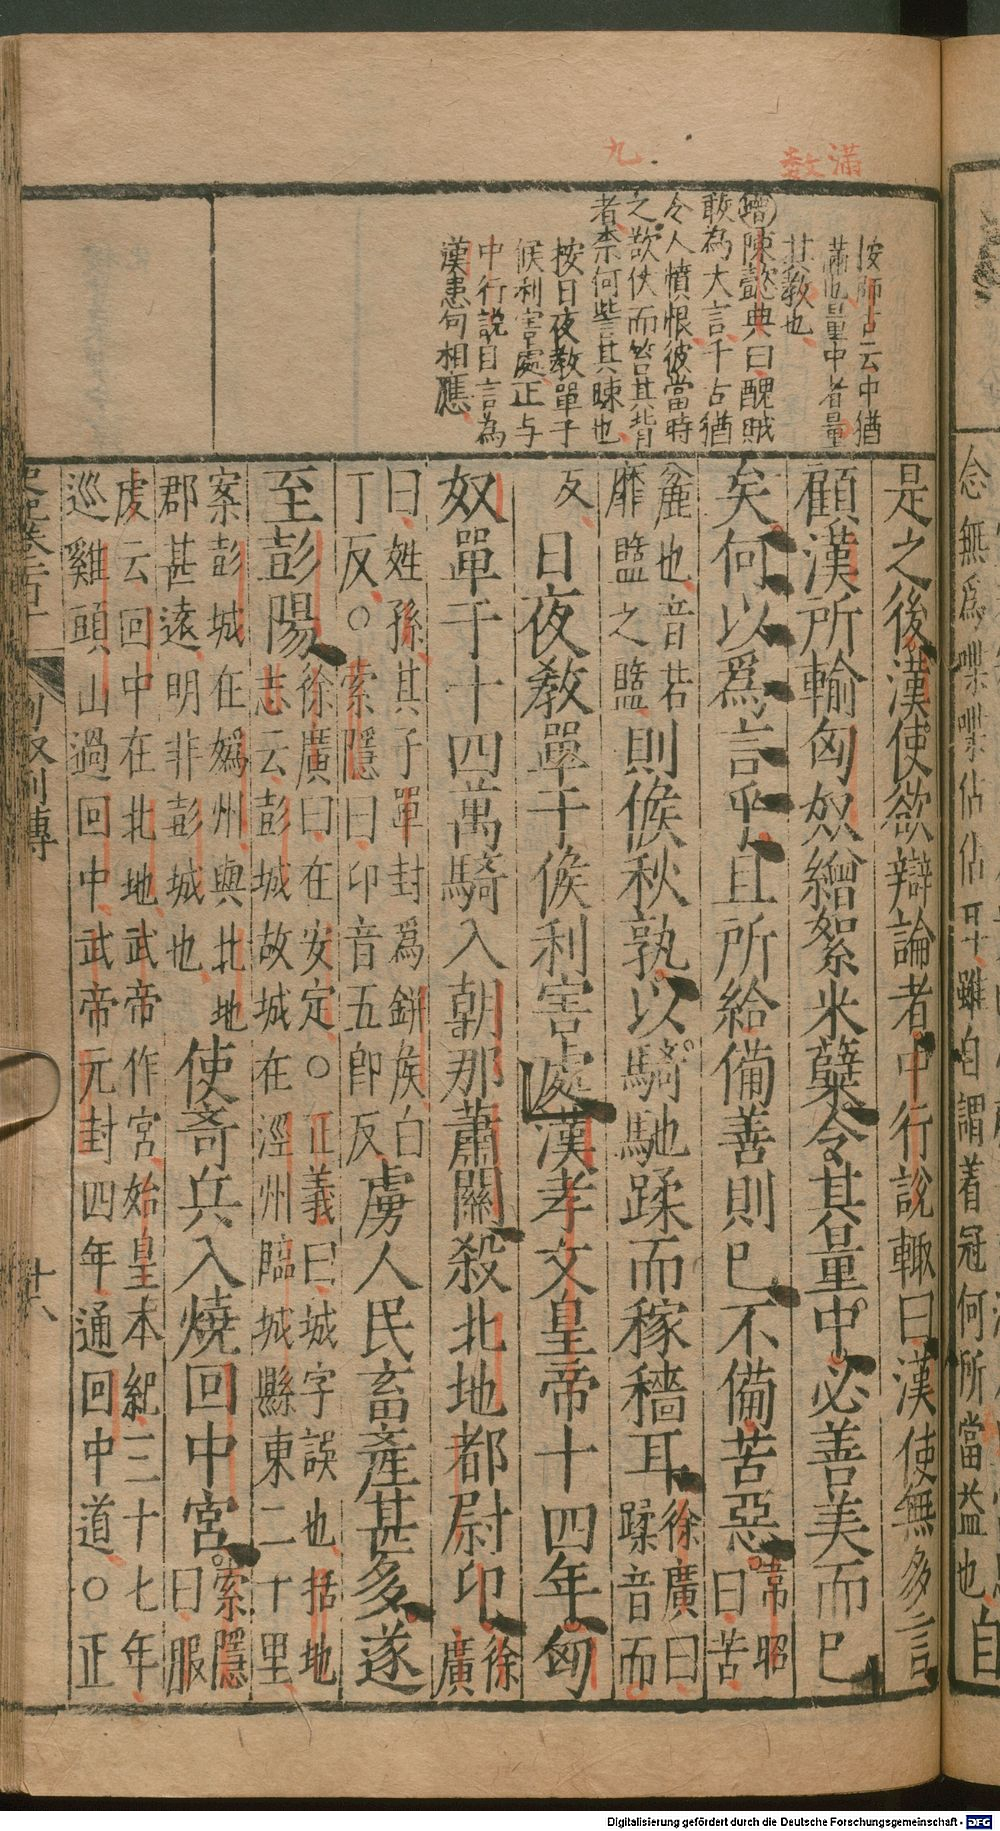 滿 数
九
按師古云中猶
滿也量中者量
其数也
增陳懿典曰醜賊
敢為大言千古猶
令人憤恨彼當時
之欲伕而笞其背
者柰何訾其暕也
按日夜教單于
候利害處正与
中行說日言為
漢患句相應
念無爲喋喋佔佔耳雖自謂着冠何所當益也
自
是之後漢使欲辯論者中行說輒曰漢使無多言
顧漢所輸匈奴繒絮米糱令其量中必善美而已
矣何以爲言乎且所給備善則已不備苦惡韋昭
曰苦
麄也音若
靡盬之盬則候秋孰以騎馳蹂而稼穡耳徐廣曰
蹂音而
反日夜敎單于候利害處漢孝文皇帝十四年匈
奴單于十四萬騎入朝那蕭關殺北地都尉卬徐
廣
曰姓孫其子單封爲缾侯白
丁反○索隱曰卬音五郎反虜人民畜產甚多遂
至彭陽徐廣曰在安定○正義曰城字誤也括地
志云彭城故城在涇州臨城縣東二十里
案彭城在嬀州與北地
郡甚遠明非彭城也使奇兵入燒回中宮索隱
曰服
虔云回中在北地武帝作宮始皇本紀二十七年
巡雞頭山過回中武帝元封四年通回中道○正
史記卷一百十 匈奴列傳 廿六
Digitalisierung gefördert durch die Deutsche Forschungsgemeinschaft - DFG